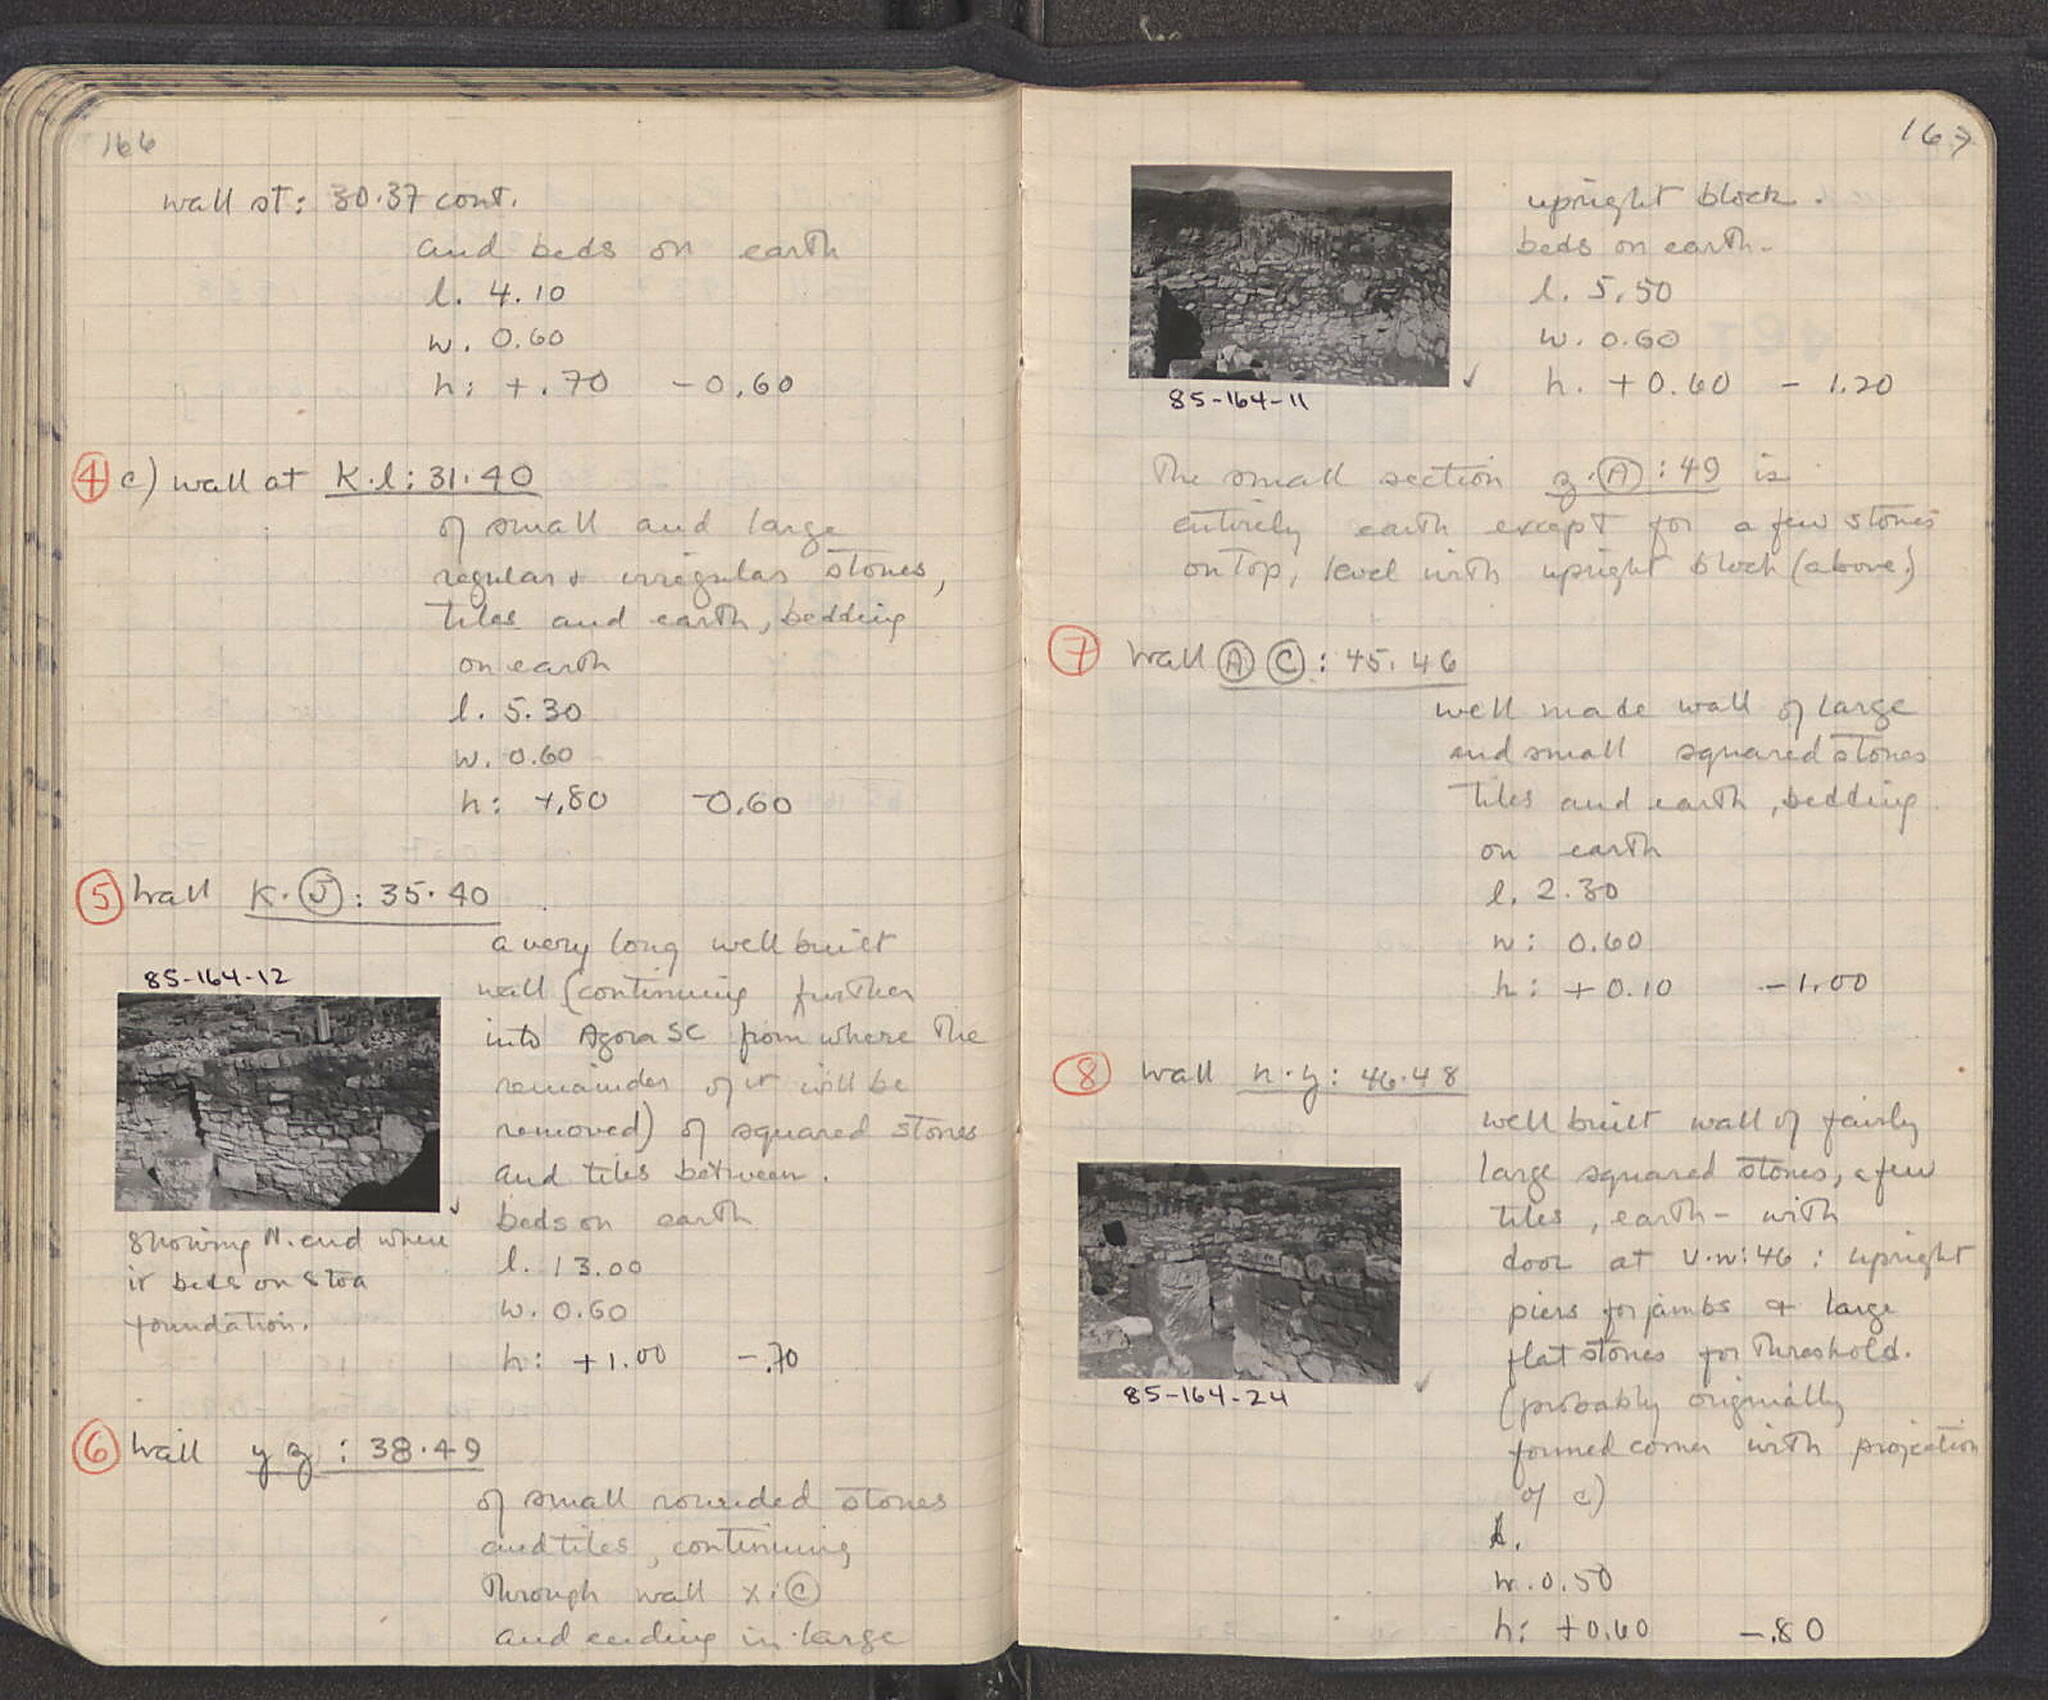 166
wall st: 30.37 cont.
and beds on earth
l. 4.10
w. 0.60
h: +.70 -0.60
④ c) wall at K.l: 31.40
of small and large
regular & irregular stones,
tiles and earth, bedding
on earth
l. 5.30
w. 0.60
h: +.80 -0.60
⑤ Wall K.Ⓙ: 35.40
a very long well built
wall (continuing further
into Agora SC from where the
remainder of it will be
removed) of squared stones
and tiles between.
beds on earth
l. 13.00
w. 0.60
h: +1.00 -.70
85-164-12
showing N. end where
it beds on stoa
foundation.
⑥ Wall y z : 38.49
of small rounded stones
and tiles, continuing
through wall x:Ⓒ
and ending in large
167
upright block.
beds on earth.
l. 5.50
w. 0.60
h. +0.60 - 1.20
85-164-11
The small section z.Ⓐ: 49 is
entirely earth except for a few stones
on top, level with upright block (above.)
⑦ Wall Ⓐ Ⓒ: 45.46
well made wall of large
and small squared stones
tiles and earth, bedding
on earth
l. 2.30
w: 0.60
h: +0.10 -1.00
⑧ Wall n.y: 46.48
well built wall of fairly
large squared stones, a few
tiles, earth - with
door at v.w: 46 : upright
piers for jambs & large
flat stones for threshold.
(probably originally
formed corner with projection
of c)
l.
w. 0.50
h: +0.60 -.80
85-164-24